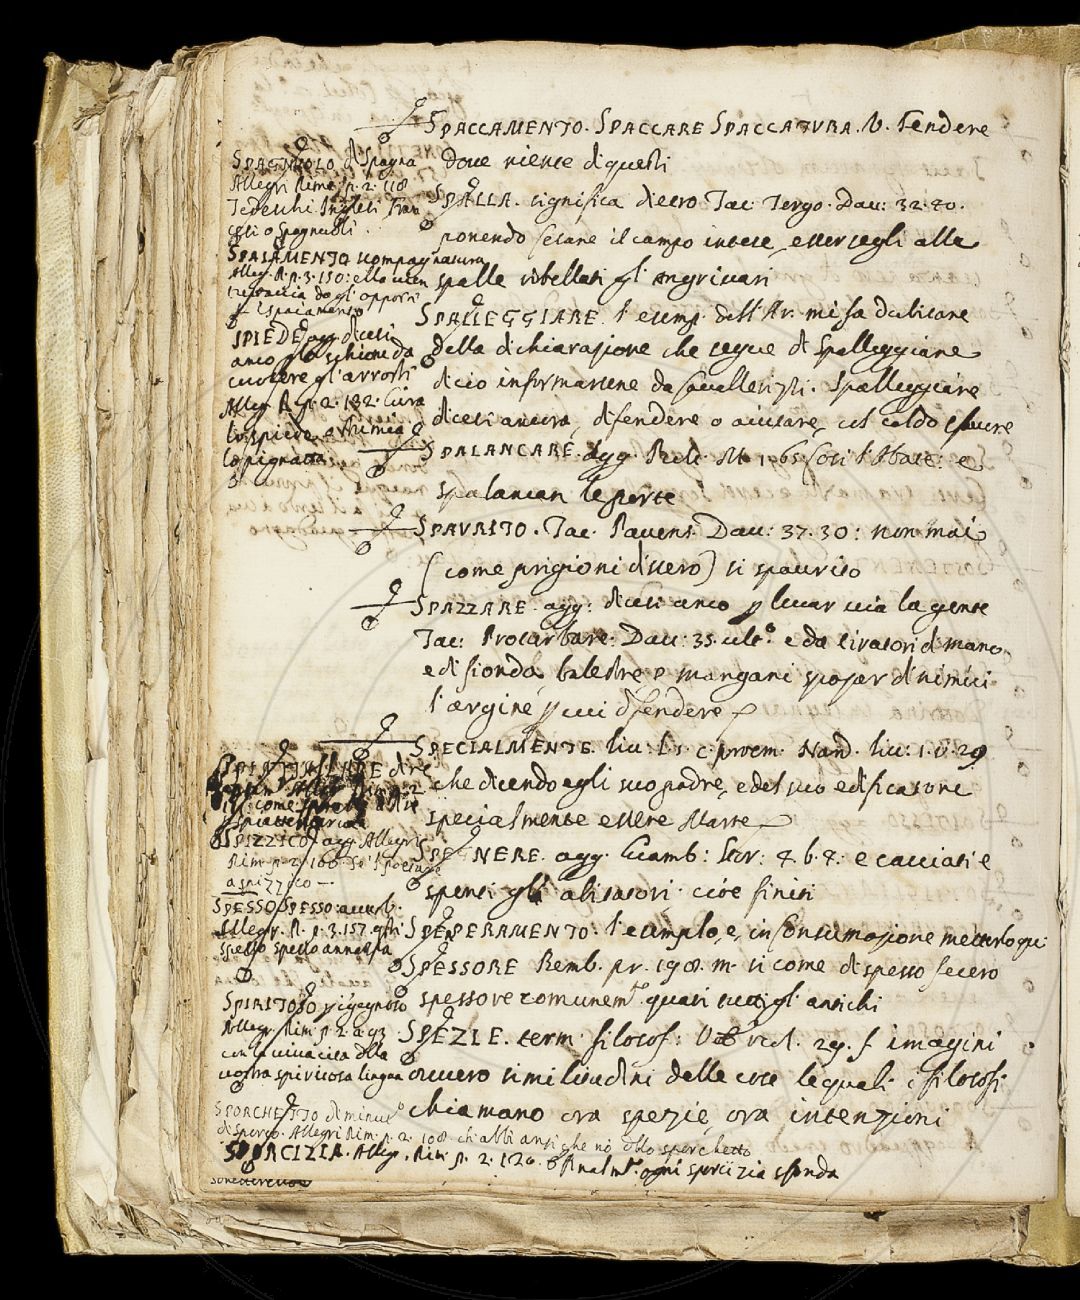 SPACCAMENTO. SPACCARE SPACCATURA. V. Fendere
dove niente di questi
SPALLA. significa dietro Tac: Tergo. Dav: 32. 20.
ponendo Cesare il campo intese, essersegli alle
spalle ribellati gl' Angrivari
SPALLEGGIARE. l' esemp. dell' Ar. mi fa dubitare
della dichiarazione che segue di Spalleggiare
di ciò informarsene da Cavallerizzi. Spalleggiare
dicesi ancora, difendere o aiutare,
SPALANCARE. Agg. e
spalancan le porte
SPAURITO. Tac. Pavens. Dav: 37. 30: non mai
(come prigioni dissero) si spaurito
SPAZZARE. agg: dicesi anco p levar via la gente
Tac: Proturbare. Dav: 35. ult.º e da tiratori di mano
e di fionda, balestre e mangani spazzar di nimici
l' argine p cui difendere
SPECIALMENTE. liv: L. 1. c. proem. Nard. liv: 1. v. 29
che dicendo egli suo padre, e del suo edificatore
specialmente essere Marte
SPEGNERE. agg. Giamb: Stor: 4. b. 4: e cacciati e
spenti gli abitatori cioè finiti
SPEPERAMENTO. l' esemplo, è, in Consumazione metterlo qui
SPESSORE Bemb. pr. 198. m. si come di spesso fecero
spessore comunem.te quasi tutti gl' antichi
SPEZIE. term. filosof: 29. f imagini
ovvero similitudini delle cose le quali i filosofi
chiamano ora spezie, ora intenzioni
SPAGNUOLO di Spagna
Allegri Rime p. 2. 118
Tedeschi Inglesi Fran
cesi o Spagnuoli
SPAIAMENTO scompagnatura
Alleg. R. p. 3. 150: ella vien
rintraccia degl' opposti
Spaiamento
SPIEDE agg dicesi
anco p lo schione da
cuocere gl' arrosti
Alleg. R. p. 2. 132. Cura
lo spiede,
la pignatta
SPIATTELLARE dire
come
spiattellarla
SPIZZICO. agg Allegri
Rim. p. 2. 100 poetare
a spizzico
SPESSO SPESSO: avverb.
Allegr. R. p. 3. 157. gli
spesso spesso
SPIRITOSO p ingegnoso
Allegr. Rim. p. 2. 293
con la vivacità della
vostra spiritosa lingua
SPORCHETTO diminut.º
di Sporco. Allegri Rim. p. 2. 108. ch' abbi anzi che nò dello sporchetto
SPORCIZIA. Alleg. Rim. p. 2. 120. Finalm.te ogni sporcizia sfonda